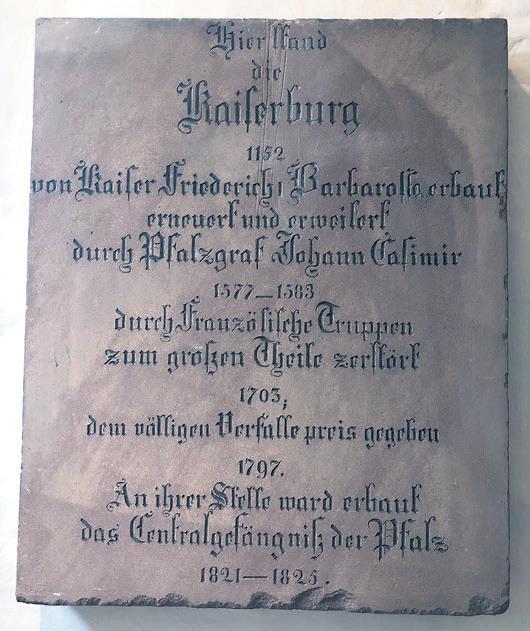 Hier ſtand
die
Kaiſerburg
1152
von Kaiſer Friederich I Barbaroſſa erbaut
erneuert und erweitert
durch Pfalzgraf Johann Caſimir
1577—1583
durch Franzöſiſche Truppen
zum großen Theile zerſtört
1703;
dem völligen Verfalle preis gegeben
1797.
An ihrer Stelle ward erbaut
das Centralgefängniß der Pfalz
1821—1825.